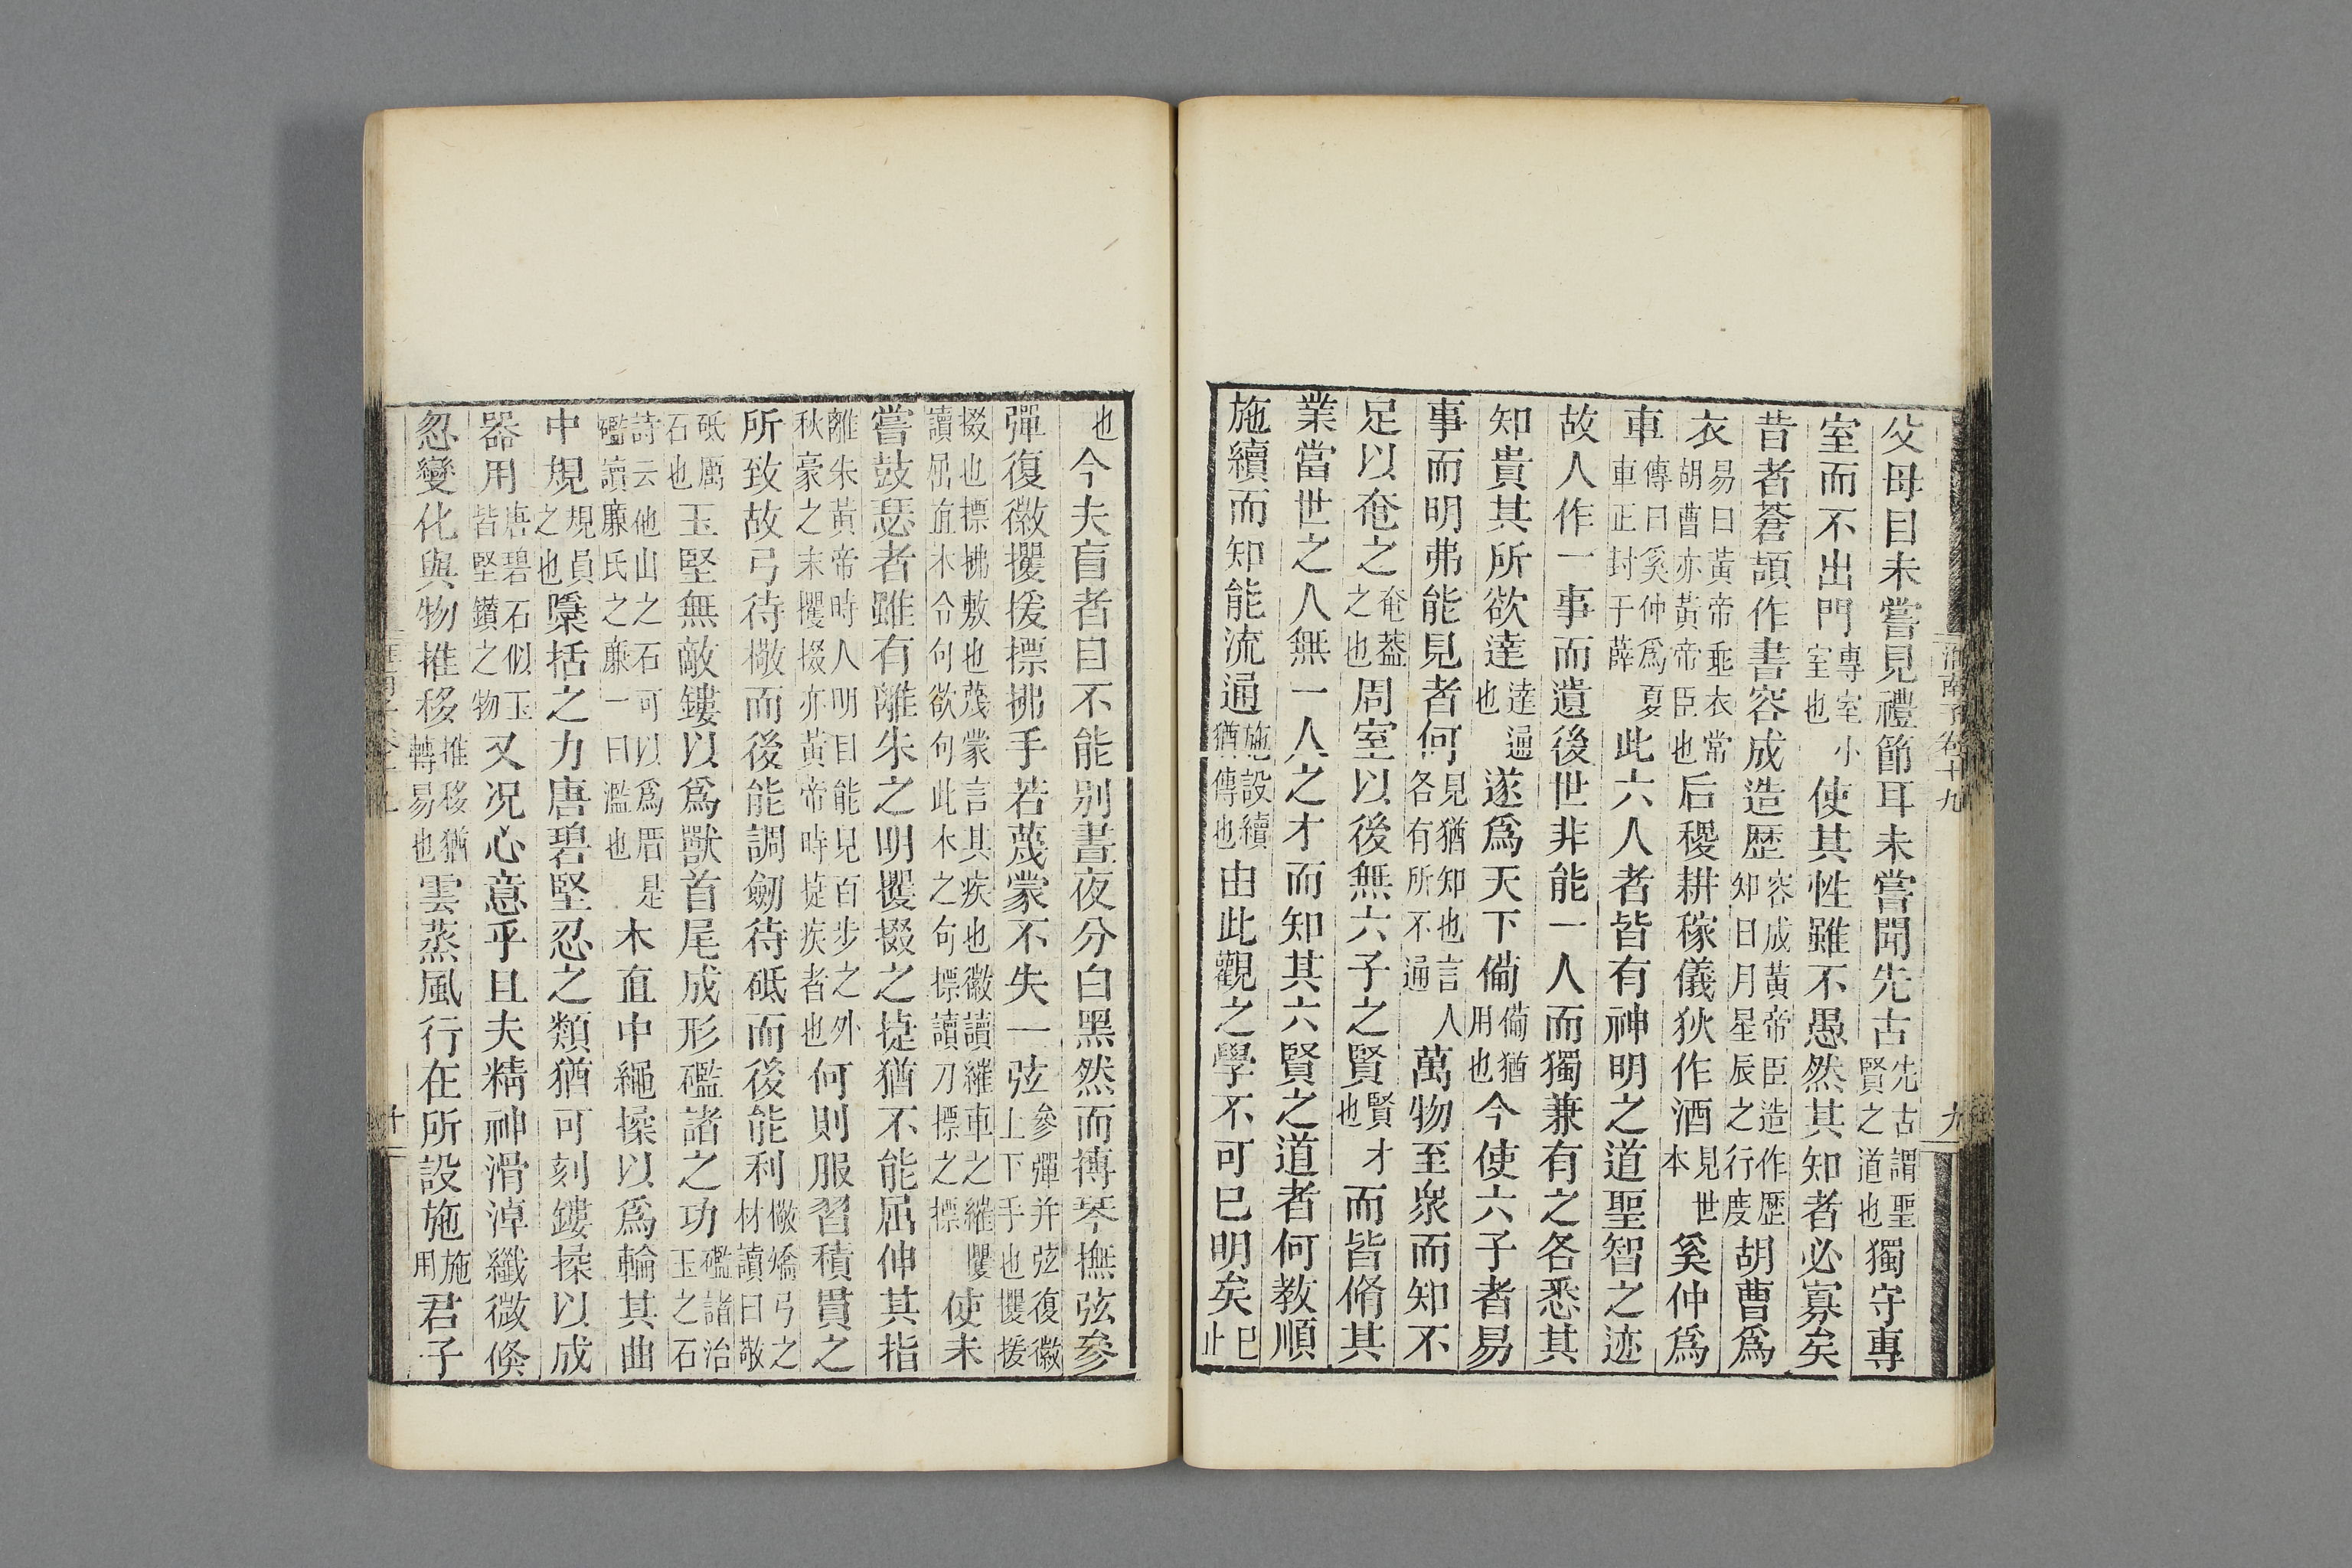 淮南子卷十九
九
父母目未嘗見禮節耳未嘗聞先古先古謂聖賢之道也獨守專
室而不出門專室小室也使其性雖不愚然其知者必寡矣
昔者蒼頡作書容成造歷容成黃帝臣造作歷知日月星辰之行度胡曹爲
衣易曰黃帝垂衣常胡曹亦黃帝臣也后稷耕稼儀狄作酒見世本奚仲爲
車傳曰奚仲爲夏車正封于薛此六人者皆有神明之道聖智之迹
故人作一事而遺後世非能一人而獨兼有之各悉其
知貴其所欲達達通也遂爲天下備備猶用也今使六子者易
事而明弗能見者何見猶知也言人各有所不通萬物至衆而知不
足以奄之奄蓋之也周室以後無六子之賢賢才也而皆脩其
業當世之人無一人之才而知其六賢之道者何教順
施續而知能流通施設續猶傳也由此觀之學不可已明矣已止
也今夫盲者目不能別晝夜分白黑然而搏琴撫弦參
彈復徽攫援摽拂手若薎蒙不失一弦參彈并弦復徽上下手也攫援
掇也摽拂敷也薎蒙言其疾也徽讀維車之維攫讀屈直木令句欲句此木之句摽讀刀摽之摽使未
嘗鼓瑟者雖有離朱之明攫掇之捷猶不能屈伸其指
離朱黃帝時人明目能見百步之外秋豪之末攫掇亦黃帝時捷疾者也何則服習積貫之
所致故弓待檠而後能調劒待砥而後能利檠矯弓之材讀曰敬
砥厲石也玉堅無敵鏤以爲獸首尾成形礛諸之功礛諸治玉之石
詩云他山之石可以爲厝是礛讀廉氏之廉一曰濫也木直中繩揉以爲輪其曲
中規規員之也檃括之力唐碧堅忍之類猶可刻鏤揉以成
器用唐碧石似玉皆堅鑽之物又况心意乎且夫精神滑淖纖微倏
忽變化與物推移推移猶轉易也雲蒸風行在所設施施用君子
十